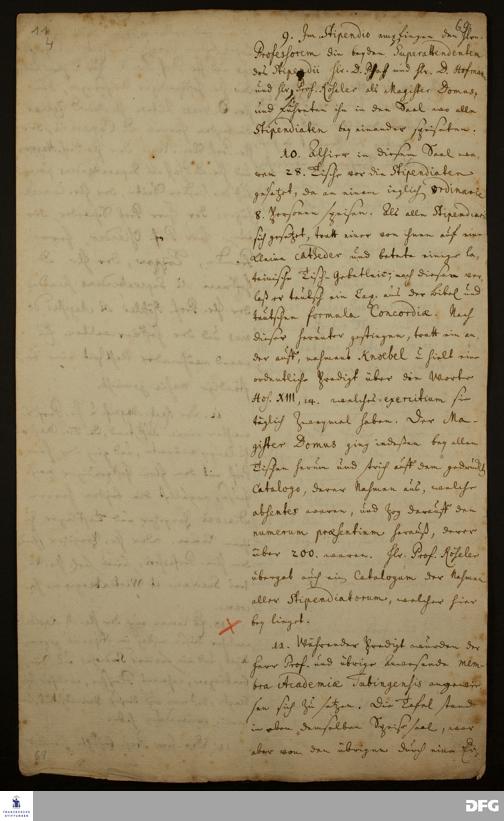 11
4
69.
9. Im Stipendio empfingen den Hrn.
Professorem die beyden Superattendenten
des Stipendii Hr. D. Pfaff und Hr. D. Hofman
und Hr. Prof. Rösler als Magister Domus,
und führeten ihn in den Saal wo alle
Stipendiaten bey einander speiseten.
10. Allhier in diesem Saal wa-
ren 28. Tische vor die Stipendiaten
gesetzet, da an einem ieglich ordinarie
8. Personen speisen. Als alle Stipendiaten
sich gesetzet, tratt einer von ihnen auf eine
kleine Catheder und betete einige la-
teinische Tisch Gebetlein; nach diesem ver-
laß er teutsch ein Cap. aus der Bibel und
teutschen formula Concordiæ. Nach
dieser herunter gestiegen, tratt ein an-
der auff, nahmens Knoebel u hielt eine
ordentliche Predigt über die Worte
Hos. XIII, 14. welches exercitium sie
täglich zweymal haben. Der Ma-
gister Domus ging indeßen bey allen
Tischen herum und strich auff dem gedruckten
Catalogo, derer Nahmen aus, welche
absentes waren, und zog darauß den
numerum præsentium herauß, derer
über 200. waren. Hr. Prof. Rösler
übergab auch ein Catalogum der Nahmen
aller Stipendiatorum, welcher hier
bey lieget.
11. Währender Predigt wurden der
Herr Prof. und übrige anwesende Mem-
bra Academiæ Tubingensis angewie-
sen sich zu setzen. Die Tafel stand
in eben demselben Speise Saal, war
aber von den übrigen durch eine
FRANCKESCHE STIFTUNGEN
DFG